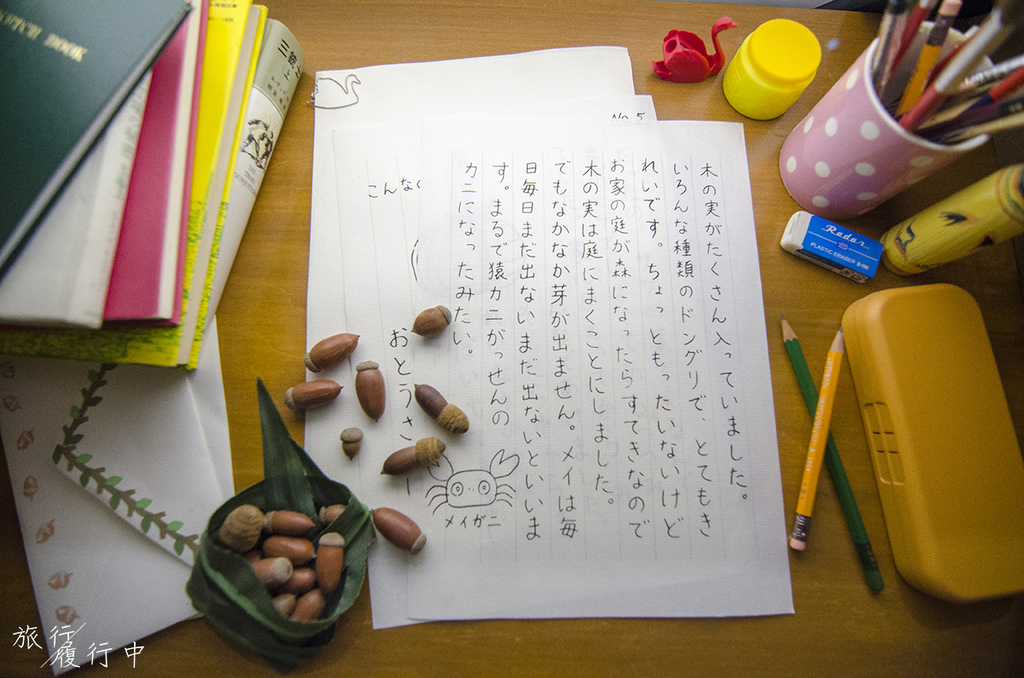 木の実がたくさん入っていました。
いろんな種類のドングリで、とてもき
れいです。ちょっともったいないけど
お家の庭が森になったらすてきなので
木の実は庭にまくことにしました。
でもなかなか芽が出ません。メイは毎
日毎日まだ出ないまだ出ないといいま
す。まるで猿カニがっせんの
カニになったみたい。
メイガニ
おとうさ
こんな
No.5
SKETCH BOOK
上
Radar
PLASTIC ERASER S-60
旅行履行中